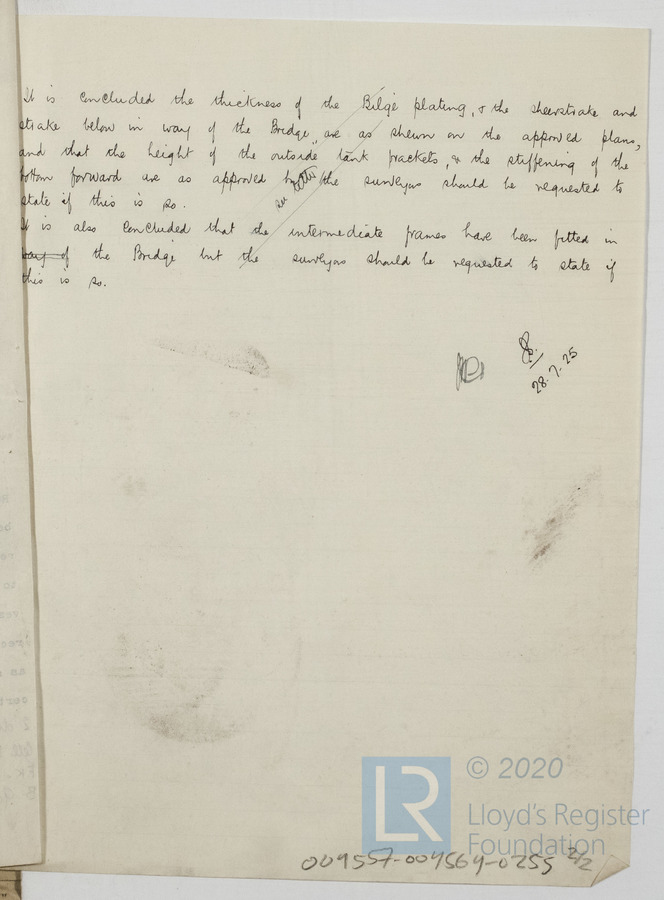 It is concluded the thickness of the Bilge plating, & the sheerstrake and
strake below in way of the Bridge, are as shewn on the approved plans,
and that the height of the outside tank brackets, & the stiffening of the
bottom forward are as approved but the surveyors should be requested to
see letter
state if this is so.
It is also concluded that the intermediate frames have been fitted in
way of the Bridge but the surveyors should be requested to state if
this is so.
28.7.25
LR
© 2020
Lloyd's Register
Foundation
009557-009564-0255 2/2